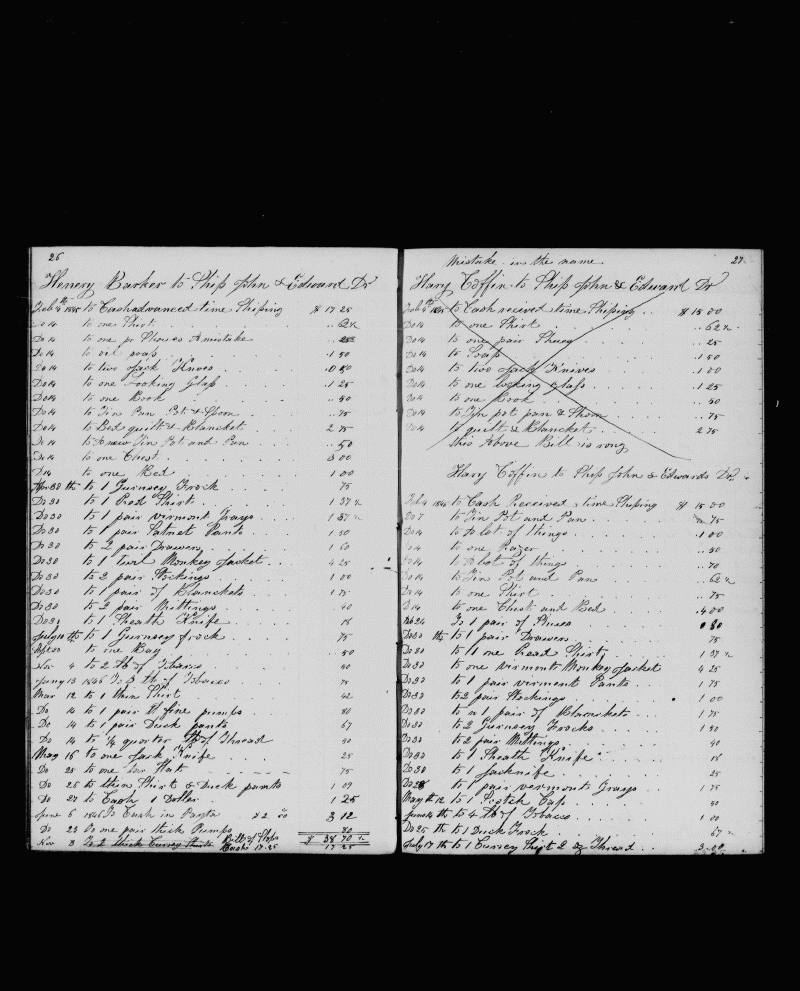 26
Henery Barker to Ship John & Edward Dr
Feb 4th 1845 to Cash advanced time Shiping $ 17 25
Do 14 to one Shirt . . 62½
Do 14 to one pr Shoues A mistake . . 25
Do 14 to soap . 1 50
Do 14 to two Jack Knives
Do 14 to one Looking Glass . 1 25
Do 14 to one Book . . 50
Do 14 to Tin Pan Pot & Spoon . . 75
Do 14 to Bed quilt & Blancket . 2 75
Do 14 to Tin Pot and Pan . . 50
Do 14 to one Chest . 3 00
Do 14 to one Bed 1 00
30 th to 1 Gurnsey Frock 75
Do 30 to 1 Read Shirt . 1 37½
Do 30 to 1 pair vermont Grays 1 37½
Do 30 to 1 pair Satnet Pants . 1 50
Do 30 to 2 pair Drawers . 1 60
Do 30 to 1 Monkey Jacket . 4 25
Do 30 to 2 pair Stockings 1 00
Do 30 to 1 pair of Blanckets 1 75
Do 30 to 2 pair Mittings 40
Do 30 to 1 Sheath Knife 18
July 10 th to 1 Gurnsey frock 75
to one Bag . . 50
Nov 4 to 2 lb of Tobacco 40
Jany 13 1846 To lb of Tobacco 75
Mar 12 to 1 thin Shirt 42
Do 14 to 1 pair of fine pumps 80
Do 14 to 1 pair Duck pants 67
Do 14 to ¼ quarter lb of Thread 50
May 16 to one Jack Knife 25
Do 25 to one Tar Hat 75
Do 26 to thin Shirt & Duck pants 1 09
Do 27 to Cash 1 Doller . 1 25
June 6 1846 To Cash in Payta $2 50 3 12
Do 23 To one pair thick Pumps 80
Nov 8 To 2 thick Gurnsey Shirts Bill of Slops $ 38 70½
Cash 17.25 17 25
Mistake in the name 27
Harry Coffin to Ship John & Edward Dr
Feb 4th 1845 to Cash recived time Shiping . . $ 15 00
Do 14 to one Shirt . . 62½
Do 14 to one pair . . 25
Do 14 to Soap . 1 50
Do 14 to two Jack Knives 1 00
Do 14 to one looking glass . 1 25
Do 14 to one Book . . 50
Do 14 to Tin pot pan & Spoon . . 75
Do 14 quilt & Blancket . 2 75
this Above Bill is rong
Harry Coffin to Ship John & Edwards Dr.
Feb 4 1845 to Cash Received time Shiping $ 15 00
Do 7 to Tin Pot and Pan . 75
Do 14 to A lot of things . 1 00
Do 14 to one Razer . . 50
Do 14 to A lot of things . . 70
Do 14 to Tin Pot and Pan . . 62½
Do 14 to one Shirt . . 75
Do 14 to one Chest and Bed . 4 00
24 To 1 pair of Shues 80
Do 30 th to 1 pair Drawers 75
Do 30 to 1 one Read Shirt 1 37½
Do 30 to one virmont Monkey Jacket 4 25
Do 30 to 1 pair virment Pants . 1 75
Do 30 to 2 pair Stockings . 1 00
Do 30 to 1 pair of Blanckets . 1 75
Do 30 to 2 Gurnsey Frocks . 1 50
Do 30 to 2 pair Mittings 40
Do 30 to 1 Sheath Knife 18
Do 30 to 1 Jacknife 25
to 1 pair vermonts Grays . 1 75
May th 12 to 1 Scotch Cap . 50
June 14 th to 4 lb of Tobacco . 1 00
Do 25 th to 1 Duck Frock . 67½
July 17 th to 1 Gurnsey Shirt 2 oz Thread . . 3 00